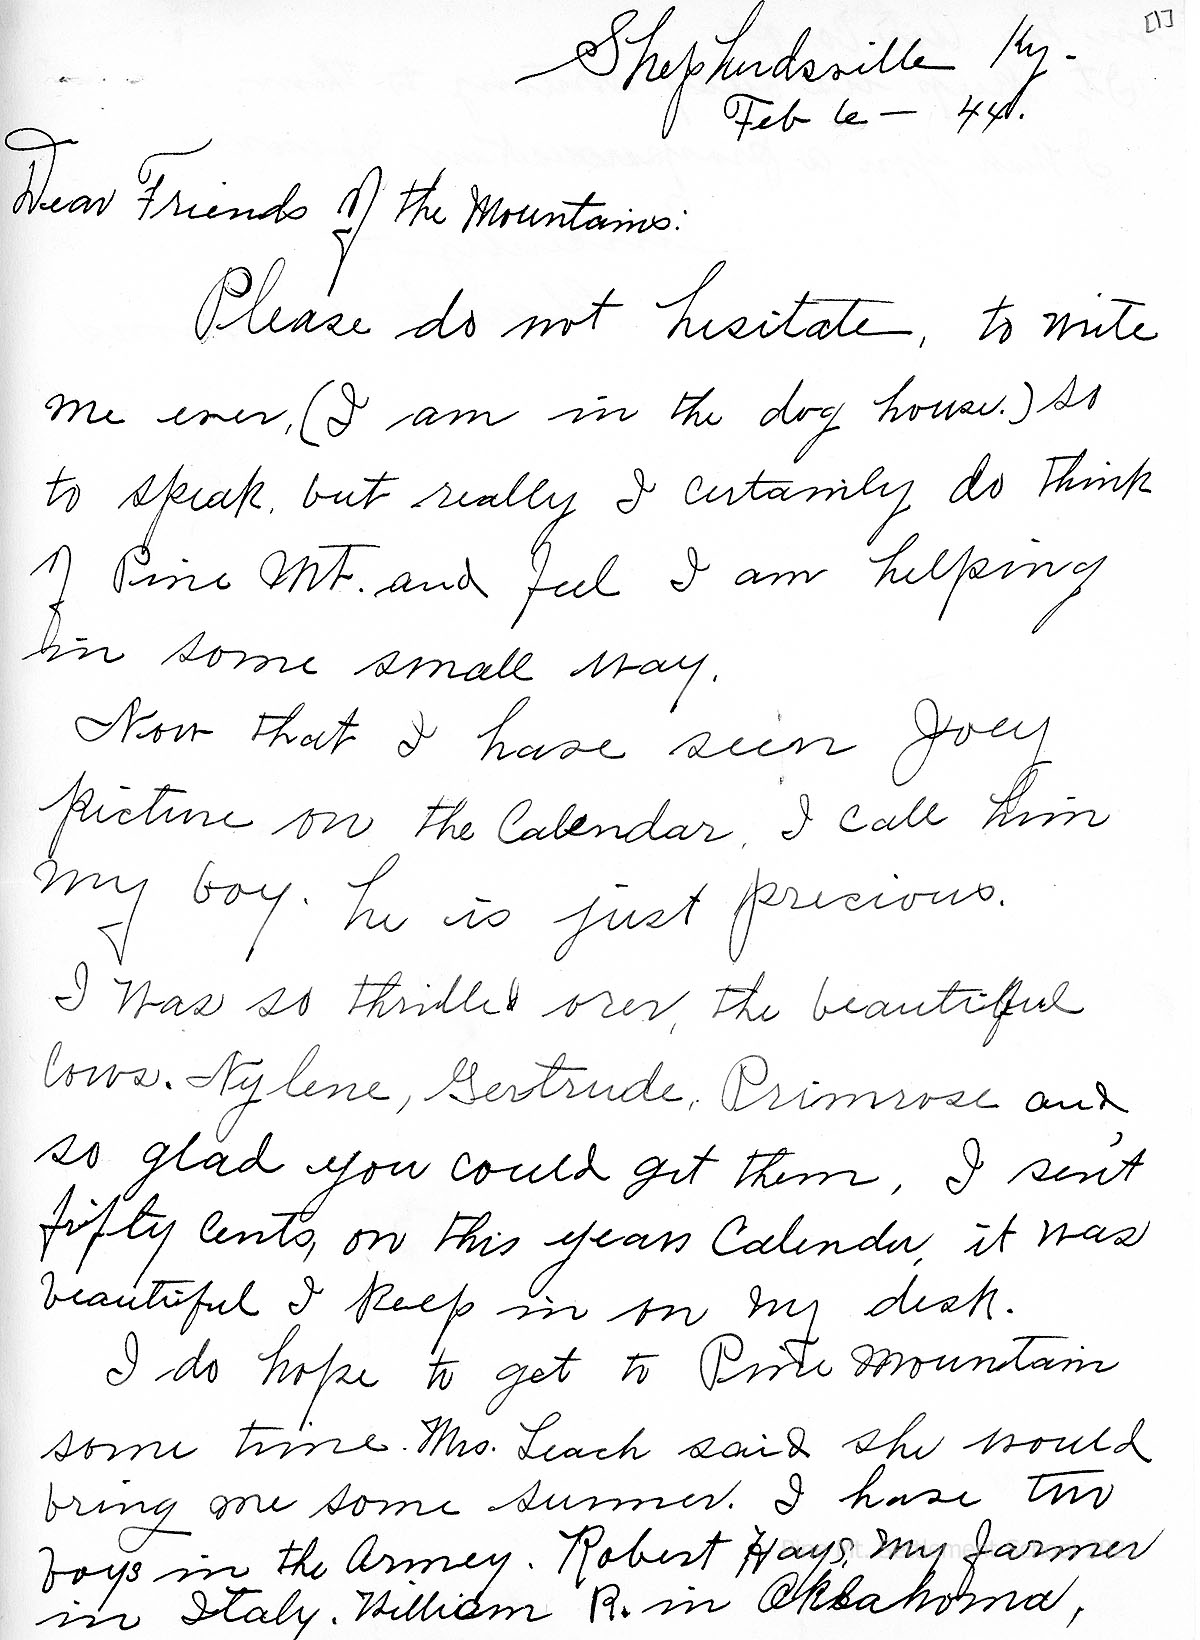 [1]
Shepherdsville Ky.
Feb 6 - 44.
Dear Friends of the Mountains:
Please do not hesitate, to write
me ever, (I am in the dog house.) so
to speak, but really I certainly do think
of Pine Mt. and feel I am helping
in some small way.
Now that I have seen Joey
picture on the Calendar, I call him
my boy. he is just precious.
I was so thrilled over, the beautiful
Cows. Nylene, Gertrude, Primrose and
so glad you could get them, I sent
fifty cents, on this years Calender, it was
beautiful I keep in on my desk.
I do hope to get to Pine Mountain
some time. Mrs. Leach said she would
bring me some summer. I have two
boys in the Armey. Robert Hays, my farmer
in Italy. William R. in Oklahoma,